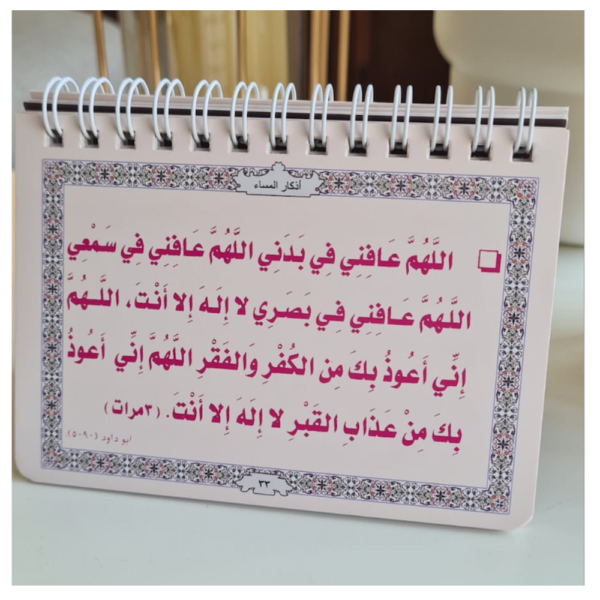 أذكار المساء
اللَّهُمَّ عَافِنِي فِي بَدَنِي اللَّهُمَّ عَافِنِي فِي سَمْعِي
اللَّهُمَّ عَافِنِي فِي بَصَرِي لا إِلَهَ إِلا أَنْتَ، اللَّهُمَّ
إِنِّي أَعُوذُ بِكَ مِن الكُفْرِ وَالفَقْرِ اللَّهُمَّ إِنِّي أَعُوذُ
بِكَ مِنْ عَذَابِ القَبْرِ لا إِلَهَ إِلا أَنْتَ. (٣مرات)
أبو داود (٥٠٩٠)
٣٣